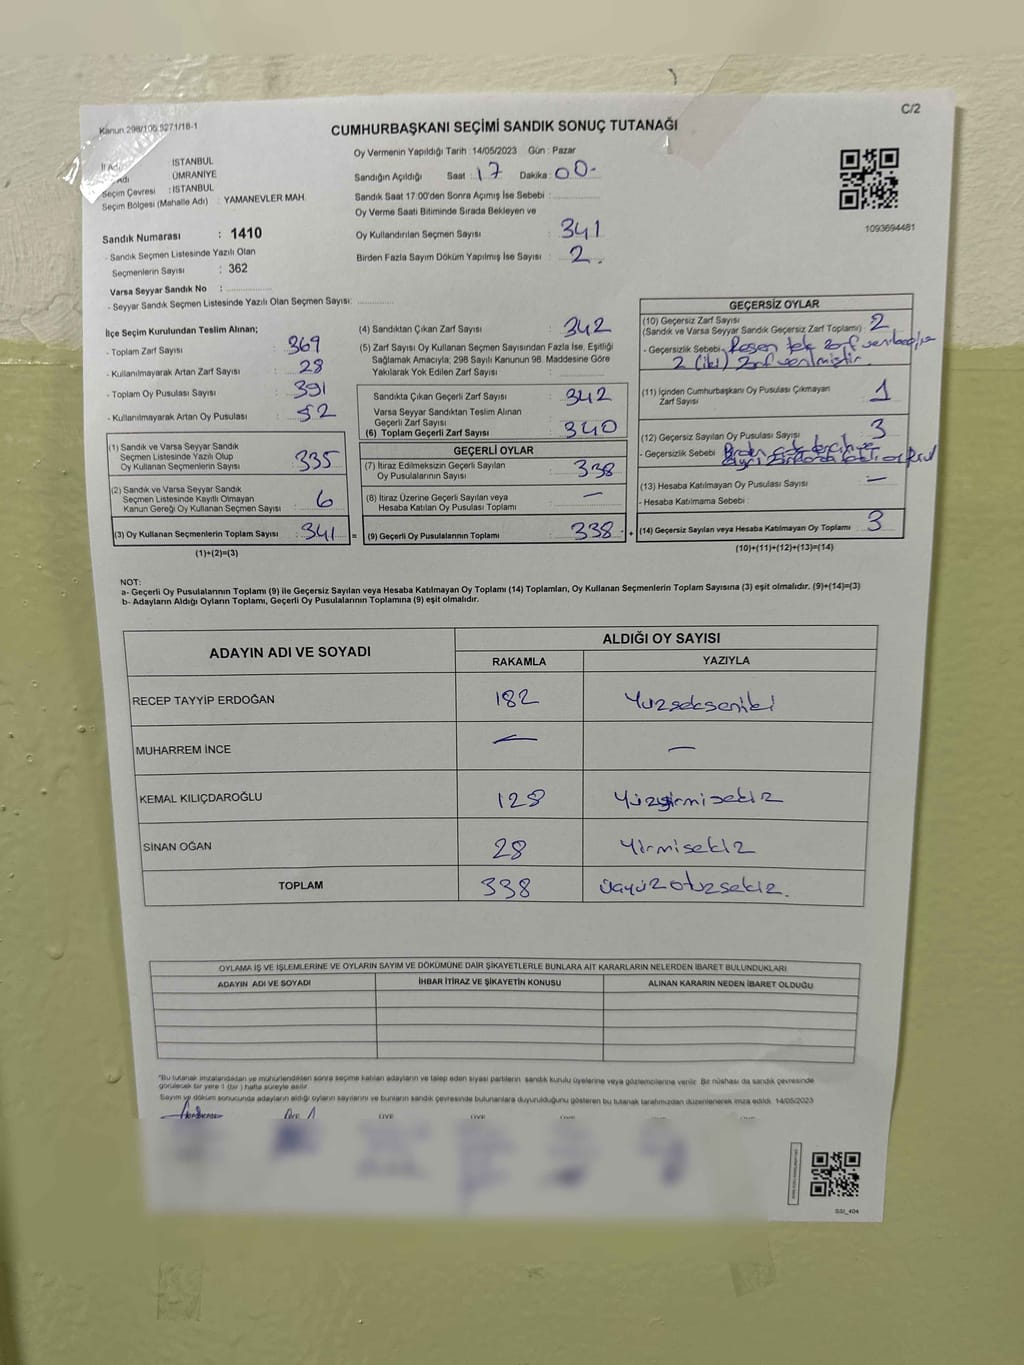 C/2
Kanun 298/106 5271/18-1
CUMHURBAŞKANI SEÇİMİ SANDIK SONUÇ TUTANAĞI
Oy Vermenin Yapıldığı Tarih :14/05/2023 Gün : Pazar
Sandığın Açıldığı Saat : 17 Dakika : 00-
Sandık Saat 17:00'den Sonra Açımış İse Sebebi :
Oy Verme Saati Bitiminde Sırada Bekleyen ve
Oy Kullandırılan Seçmen Sayısı : 341
Birden Fazla Sayım Döküm Yapılmış İse Sayısı : 2.
: İSTANBUL
Adı : ÜMRANİYE
Seçim Çevresi : İSTANBUL
Seçim Bölgesi (Mahalle Adı) : YAMANEVLER MAH.
Sandık Numarası : 1410
- Sandık Seçmen Listesinde Yazılı Olan
Seçmenlerin Sayısı : 362
Varsa Seyyar Sandık No :
- Seyyar Sandık Seçmen Listesinde Yazılı Olan Seçmen Sayısı:
1093694481
İlçe Seçim Kurulundan Teslim Alınan;
- Toplam Zarf Sayısı : 369
- Kullanılmayarak Artan Zarf Sayısı : 28
- Toplam Oy Pusulası Sayısı : 391
- Kullanılmayarak Artan Oy Pusulası : 52
(1) Sandık ve Varsa Seyyar Sandık
Seçmen Listesinde Yazılı Olup
Oy Kullanan Seçmenlerin Sayısı : 335
(2) Sandık ve Varsa Seyyar Sandık
Seçmen Listesinde Kayıtlı Olmayan
Kanun Gereği Oy Kullanan Seçmen Sayısı : 6
(3) Oy Kullanan Seçmenlerin Toplam Sayısı : 341 =
(1)+(2)=(3)
(4) Sandıktan Çıkan Zarf Sayısı : 342
(5) Zarf Sayısı Oy Kullanan Seçmen Sayısından Fazla İse, Eşitliği
Sağlamak Amacıyla; 298 Sayılı Kanunun 98. Maddesine Göre
Yakılarak Yok Edilen Zarf Sayısı :
Sandıkta Çıkan Geçerli Zarf Sayısı : 342
Varsa Seyyar Sandıktan Teslim Alınan
Geçerli Zarf Sayısı :
(6) Toplam Geçerli Zarf Sayısı : 340
GEÇERLİ OYLAR
(7) İtiraz Edilmeksizin Geçerli Sayılan
Oy Pusulalarının Sayısı : 338
(8) İtiraz Üzerine Geçerli Sayılan veya
Hesaba Katılan Oy Pusulası Toplamı : —
(9) Geçerli Oy Pusulalarının Toplamı : 338 +
GEÇERSİZ OYLAR
(10) Geçersiz Zarf Sayısı
(Sandık ve Varsa Seyyar Sandık Geçersiz Zarf Toplamı) : 2
- Geçersizlik Sebebi : tek zarf
2 (iki) zarf verilmiştir.
(11) İçinden Cumhurbaşkanı Oy Pusulası Çıkmayan
Zarf Sayısı : 1
(12) Geçersiz Sayılan Oy Pusulası Sayısı : 3
- Geçersizlik Sebebi
(13) Hesaba Katılmayan Oy Pusulası Sayısı : —
- Hesaba Katılmama Sebebi :
(14) Geçersiz Sayılan veya Hesaba Katılmayan Oy Toplamı : 3
(10)+(11)+(12)+(13)=(14)
NOT:
a- Geçerli Oy Pusulalarının Toplamı (9) ile Geçersiz Sayılan veya Hesaba Katılmayan Oy Toplamı (14) Toplamları, Oy Kullanan Seçmenlerin Toplam Sayısına (3) eşit olmalıdır. (9)+(14)=(3)
b- Adayların Aldığı Oyların Toplamı, Geçerli Oy Pusulalarının Toplamına (9) eşit olmalıdır.
ADAYIN ADI VE SOYADI ALDIĞI OY SAYISI
RAKAMLA YAZIYLA
RECEP TAYYİP ERDOĞAN 182 Yüzsekseniki
MUHARREM İNCE — —
KEMAL KILIÇDAROĞLU 128 Yüzyirmisekiz
SİNAN OĞAN 28 Yirmisekiz
TOPLAM 338 üçyüzotuzsekiz.
OYLAMA İŞ VE İŞLEMLERİNE VE OYLARIN SAYIM VE DÖKÜMÜNE DAİR ŞİKAYETLERLE BUNLARA AİT KARARLARIN NELERDEN İBARET BULUNDUKLARI
ADAYIN ADI VE SOYADI İHBAR İTİRAZ VE ŞİKAYETİN KONUSU ALINAN KARARIN NEDEN İBARET OLDUĞU
"Bu tutanak imzalandıktan ve mühürlendikten sonra seçime katılan adayların ve talep eden siyasi partilerin sandık kurulu üyelerine veya gözlemcilerine verilir. Bir nüshası da sandık çevresinde
görülecek bir yere 1 (bir) hafta süreyle asılır.
Sayım ve döküm sonucunda adayların aldığı oyların sayılarını ve bunların sandık çevresinde bulunanlara duyurulduğunu gösteren bu tutanak tarafımızdan düzenlenerek imza edildi. 14/05/2023
SSİ_404